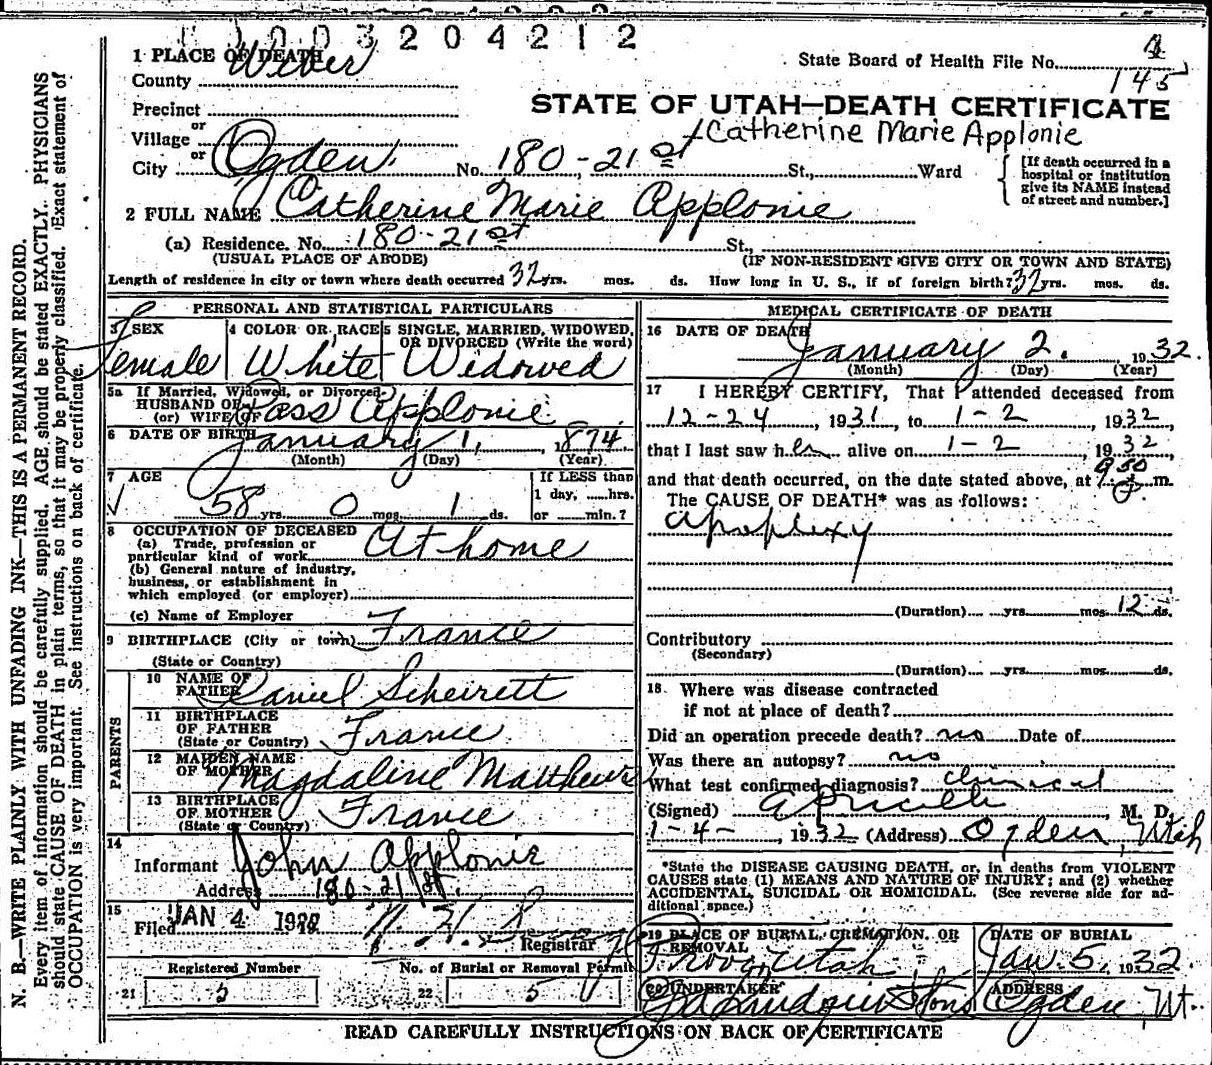 003204212
1 PLACE OF DEATH
County Weber
State Board of Health File No. 145
Precinct
STATE OF UTAH—DEATH CERTIFICATE
or
Village
Catherine Marie Applonie
or
City Ogden No. 180-21st St., Ward
[If death occurred in a hospital or institution give its NAME instead of street and number.]
2 FULL NAME Catherine Marie Applonie
(a) Residence. No. 180-21st St.,
(USUAL PLACE OF ABODE) (IF NON-RESIDENT GIVE CITY OR TOWN AND STATE)
Length of residence in city or town where death occurred 32 yrs. mos. ds. How long in U. S., if of foreign birth? 32 yrs. mos. ds.
PERSONAL AND STATISTICAL PARTICULARS
3 SEX 4 COLOR OR RACE 5 SINGLE, MARRIED, WIDOWED, OR DIVORCED (Write the word)
Female White Widowed
5a If Married, Widowed, or Divorced
HUSBAND OF
(or) WIFE OF Applonie
6 DATE OF BIRTH January 1, 1874
(Month) (Day) (Year)
7 AGE If LESS than
1 day, hrs.
58 yrs. 0 mos. 1 ds. or min.?
8 OCCUPATION OF DECEASED
(a) Trade, profession or
particular kind of work At home
(b) General nature of industry,
business, or establishment in
which employed (or employer)
(c) Name of Employer
9 BIRTHPLACE (City or town) France
(State or Country)
PARENTS
10 NAME OF
FATHER Daniel Scheirett
11 BIRTHPLACE
OF FATHER
(State or Country) France
12 MAIDEN NAME
OF MOTHER Magdaline Matthews
13 BIRTHPLACE
OF MOTHER
(State or Country) France
14
Informant John Applonie
Address 180-21st.
15
Filed JAN 4
Registrar
Registered Number No. of Burial or Removal Permit
21 5 22 5
MEDICAL CERTIFICATE OF DEATH
16 DATE OF DEATH
January 2. 1932.
(Month) (Day) (Year)
17 I HEREBY CERTIFY, That I attended deceased from
12-24, 1931, to 1-2, 1932
that I last saw her alive on 1-2, 1932
and that death occurred, on the date stated above, at m.
The CAUSE OF DEATH* was as follows:
Apoplexy
(Duration) yrs. mos. 12 ds.
Contributory
(Secondary)
(Duration) yrs. mos. ds.
18. Where was disease contracted
if not at place of death?
Did an operation precede death? no Date of
Was there an autopsy? no
What test confirmed diagnosis? clinical
(Signed) M. D.
1-4-, 1932 (Address) Ogden, Utah
*State the DISEASE CAUSING DEATH, or, in deaths from VIOLENT
CAUSES state (1) MEANS AND NATURE OF INJURY; and (2) whether
ACCIDENTAL, SUICIDAL OR HOMICIDAL. (See reverse side for ad-
ditional space.)
19 PLACE OF BURIAL, CREMATION, OR REMOVAL DATE OF BURIAL
Provo, Utah Jan. 5, 1932.
20 UNDERTAKER ADDRESS
Sons Ogden, Ut.
READ CAREFULLY INSTRUCTIONS ON BACK OF CERTIFICATE
N. B.—WRITE PLAINLY WITH UNFADING INK—THIS IS A PERMANENT RECORD.
Every item of information should be carefully supplied. AGE should be stated EXACTLY. PHYSICIANS
should state CAUSE OF DEATH in plain terms, so that it may be properly classified. Exact statement of
OCCUPATION is very important. See instructions on back of certificate.